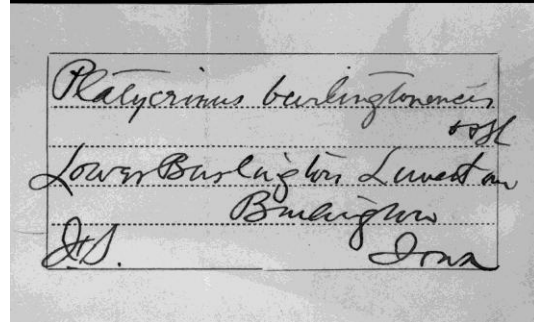 Platycrinus burlingtonensis
O+Sh
Lower Burlington Limestone
Burlington
Iowa